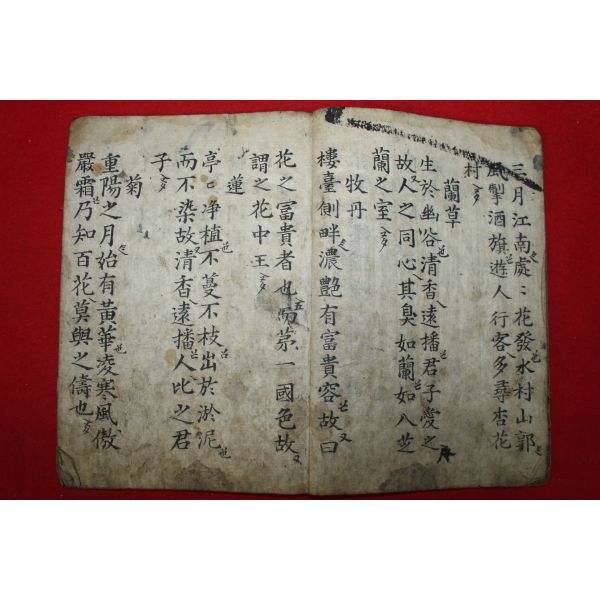 三月江南處〻花發水村山郭
風掣酒旗遊人行客多尋杏花
村
蘭草
生於幽谷清香遠播君子愛之
故人之同心其臭如蘭如入芝
蘭之室
牧丹
樓臺側畔濃艶有富貴容故曰
花之冨貴者也 第一國色故
謂之花中王
蓮
亭〻净植不蔓不枝出於淤泥
而不染故清香遠播人比之君
子
菊
重陽之月始有黃華凌寒風傲
嚴霜乃知百花莫與之儔也